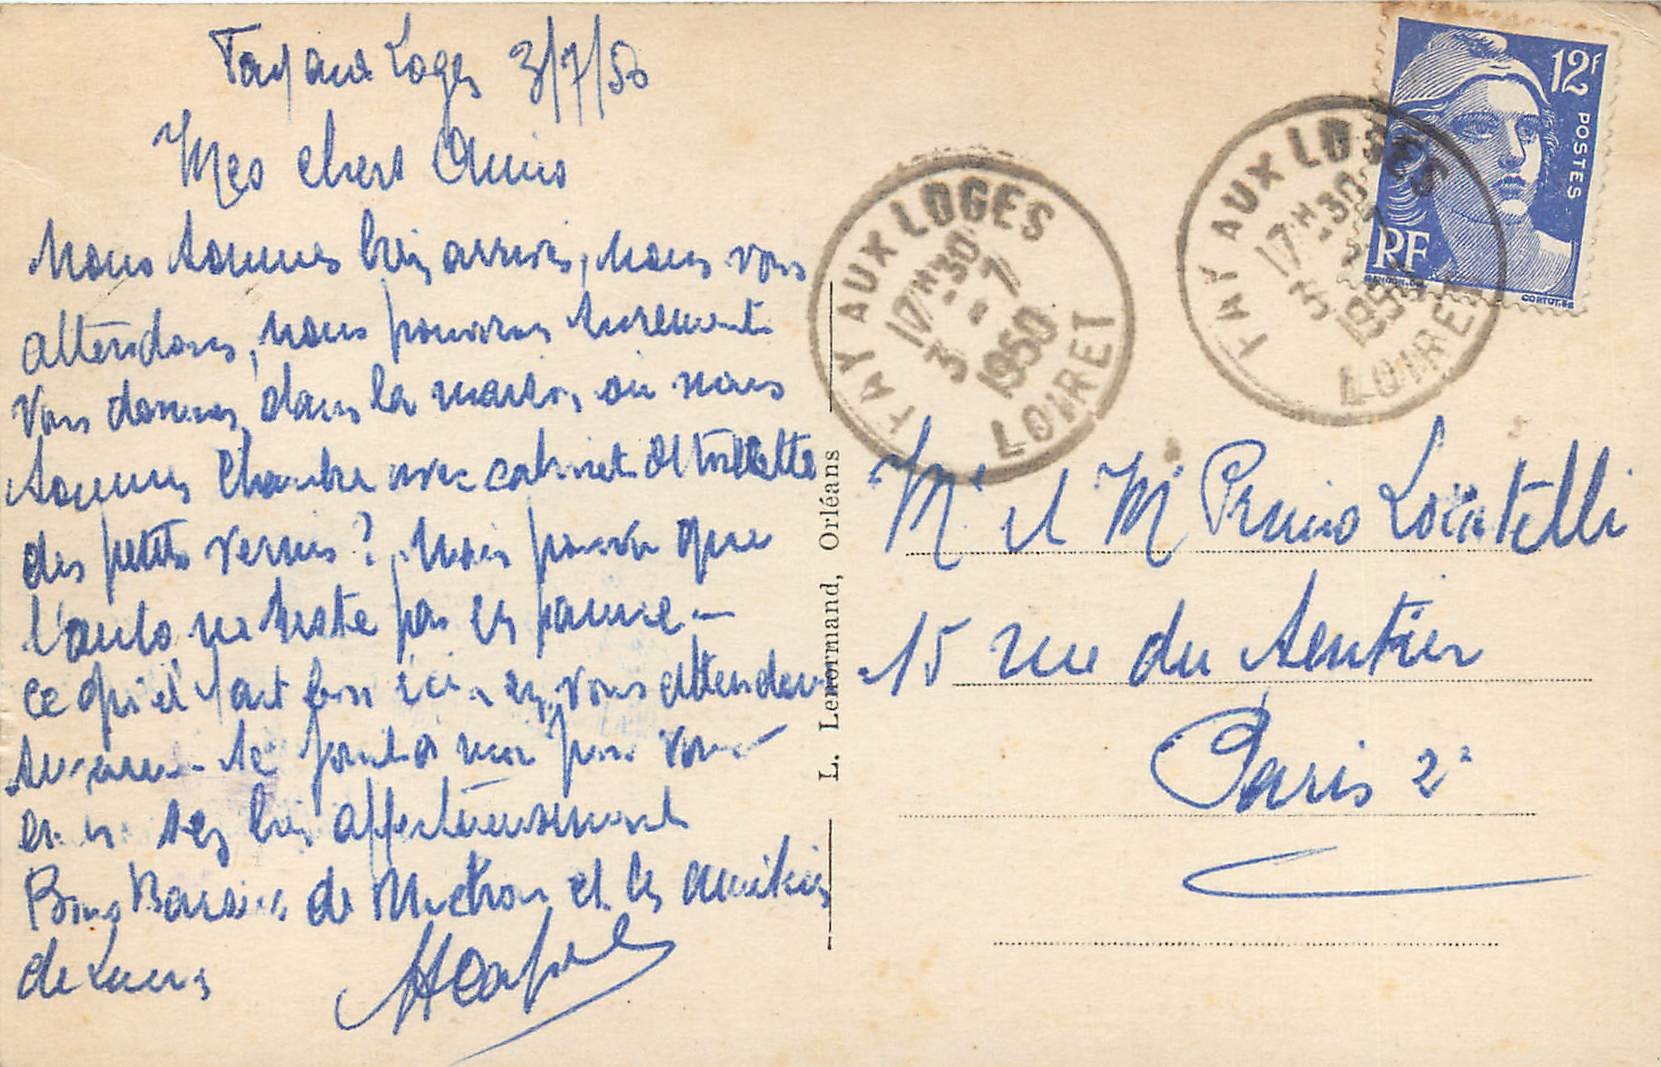 Fay aux Loges 3/7/50
Mes chers Amis
Nous sommes bien arrivés, nous vous
attendons, nous pouvons surement
vous donner dans la maison où nous
sommes chambre avec cabinet de toilette
des petits vernis ? Mais pourvu que
l'auto ne reste pas en panne -
ce qu'il fait bon ici - en vous attendant
pour vous
bien affectueusement
Bons Baisers de et les amitiés
de
12F
POSTES
RF
GANDON. DEL
CORTOT. SC
FAY AUX LOGES
17H30
3 - 7
1950
LOIRET
FAY AUX LOGES
17H30
3 7
1950
LOIRET
L. Lenormand, Orléans
Mr et Me Primo Locatelli
15 rue du Sentier
Paris 2e